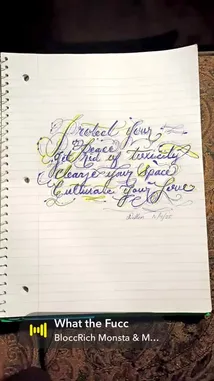 Protect your
Peace
get rid of toxicity
Cleanse your Space
Cultivate Your Love
What the Fucc
BloccRich Monsta & M...